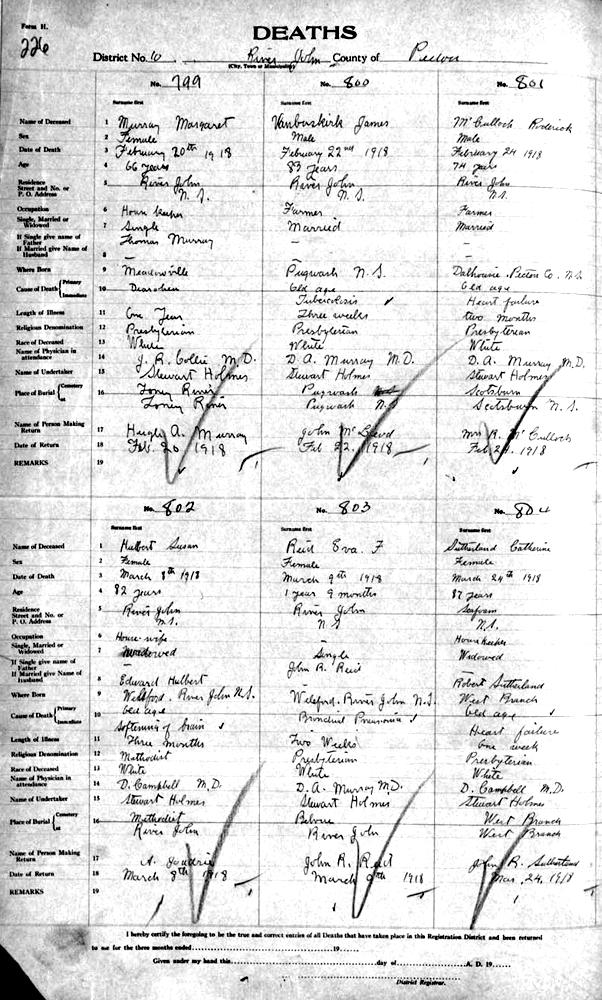 Form H.
226
DEATHS
District No. 10 River John County of Pictou
(City, Town or Municipality)
No. 799 No. 800 No. 801
Surname first Surname first Surname first
Name of Deceased 1 Murray Margaret Vanbuskirk James McCulloch Roderick
Sex 2 Female Male Male
Date of Death 3 February 20th 1918 February 22nd 1918 February 24 1918
Age 4 66 years 83 years 74 years
Residence Street and No. or P. O. Address 5 River John N.S. River John N.S. River John N.S.
Occupation 6 House keeper Farmer Farmer
Single, Married or Widowed 7 Single Married Married
If Single give name of Father Thomas Murray – –
If Married give Name of Husband 8 – – –
Where Born 9 Meadowville Pugwash N.S. Dalhousie Pictou Co. N.S.
Cause of Death Primary 10 Old age Old age
Immediate Tuberculosis Heart failure
Length of Illness 11 One Year Three weeks two months
Religious Denomination 12 Presbyterian Presbyterian Presbyterian
Race of Deceased 13 White White White
Name of Physician in attendance 14 J. R. Collie M.D. D. A. Murray M.D. D. A. Murray M.D.
Name of Undertaker 15 Stewart Holmes Stewart Holmes Stewart Holmes
Place of Burial Cemetery 16 Toney River Pugwash N.S. Scotsburn
at Toney River Pugwash N.S. Scotsburn N.S.
Name of Person Making Return 17 Hugh A. Murray John McLeod Mrs R. McCulloch
Date of Return 18 Feb. 20 1918 Feb 22. 1918 Feb 24. 1918
REMARKS 19
No. 802 No. 803 No. 804
Surname first Surname first Surname first
Name of Deceased 1 Hulbert Susan Reid Eva. F Sutherland Catherine
Sex 2 Female Female Female
Date of Death 3 March 8th 1918 March 9th 1918 March 24th 1918
Age 4 82 years 1 year 9 months 87 years
Residence Street and No. or P. O. Address 5 River John N.S. River John N.S. Seafoam N.S.
Occupation 6 House-wife – House keeper
Single, Married or Widowed 7 Widowed Single Widowed
If Single give name of Father – John R. Reid
If Married give Name of Husband 8 Edward Hulbert – Robert Sutherland
Where Born 9 Welsford. River John N.S. Welsford. River John N.S. West Branch
Cause of Death Primary 10 Old age Old age
Immediate Softening of brain Bronchial Pneumonia Heart failure
Length of Illness 11 Three months Two Weeks One week
Religious Denomination 12 Methodist Presbyterian Presbyterian
Race of Deceased 13 White White White
Name of Physician in attendance 14 D. Campbell M.D. D. A. Murray M.D. D. Campbell M.D.
Name of Undertaker 15 Stewart Holmes Stewart Holmes Stewart Holmes
Place of Burial Cemetery 16 Methodist West Branch
at River John River John West Branch
Name of Person Making Return 17 A. John R. Reid John R. Sutherland
Date of Return 18 March 8th 1918 March 9th 1918 Mar. 24. 1918
REMARKS 19
I hereby certify the foregoing to be the true and correct entries of all Deaths that have taken place in this Registration District and been returned
to me for the three months ended 19
Given under my hand this day of A. D. 19
District Registrar.